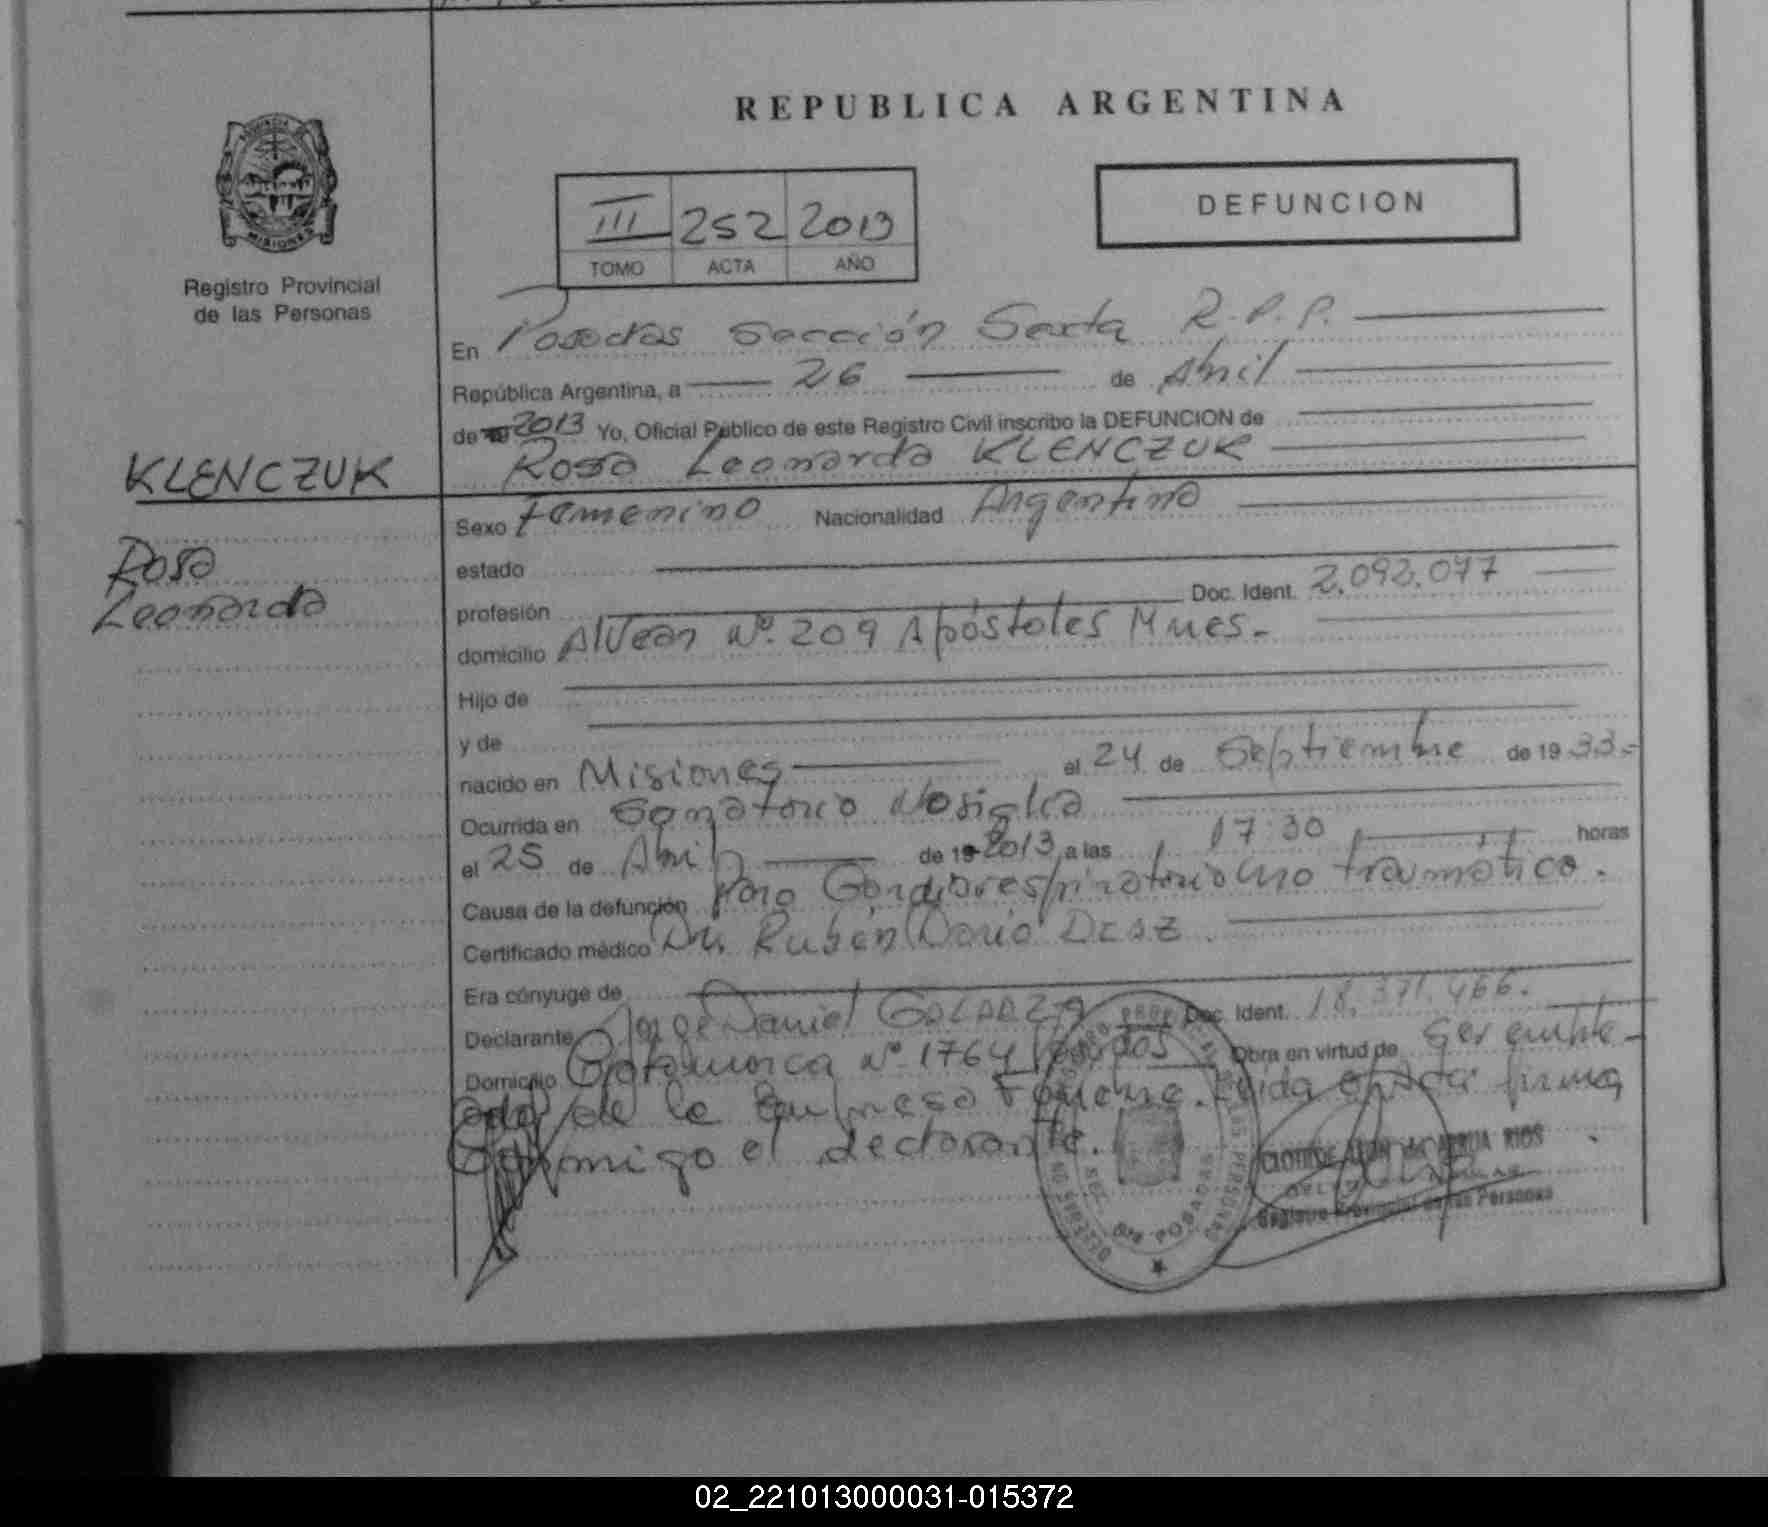 REPUBLICA ARGENTINA
MISIONES
Registro Provincial
de las Personas
III 252 2013
TOMO ACTA AÑO
DEFUNCION
En Posadas Sección Sexta R.P.P.
República Argentina, a 26 de Abril
de 19 2013 Yo, Oficial Público de este Registro Civil inscribo la DEFUNCION de
Rosa Leonarda KLENCZUK
KLENCZUK
Rosa
Leonarda
Sexo Femenino Nacionalidad Argentina
estado
profesión Doc. Ident. 2.092.077
domicilio Alvear Nº. 209 Apóstoles Mnes.-
Hijo de
y de
nacido en Misiones el 24 de Septiembre de 19 33.-
Ocurrida en Sanatorio Nosiglia
el 25 de Abril de 19 2013 a las 17:30 horas
Causa de la defunción Paro Cardiorespiratorio no traumático.
Certificado médico Dr. Rubén Dario Diaz
Era cónyuge de
Declarante Jorge Daniel GALARZA Doc. Ident. 18.371.466.
Domicilio Catamarca Nº 1764 Posadas Obra en virtud de ser emple-
ado de la Empresa Fúnebre. Leida el acta firma
Conmigo el declarante.
RIOS
Registro Provincial de las Personas
POSADAS
02_221013000031-015372